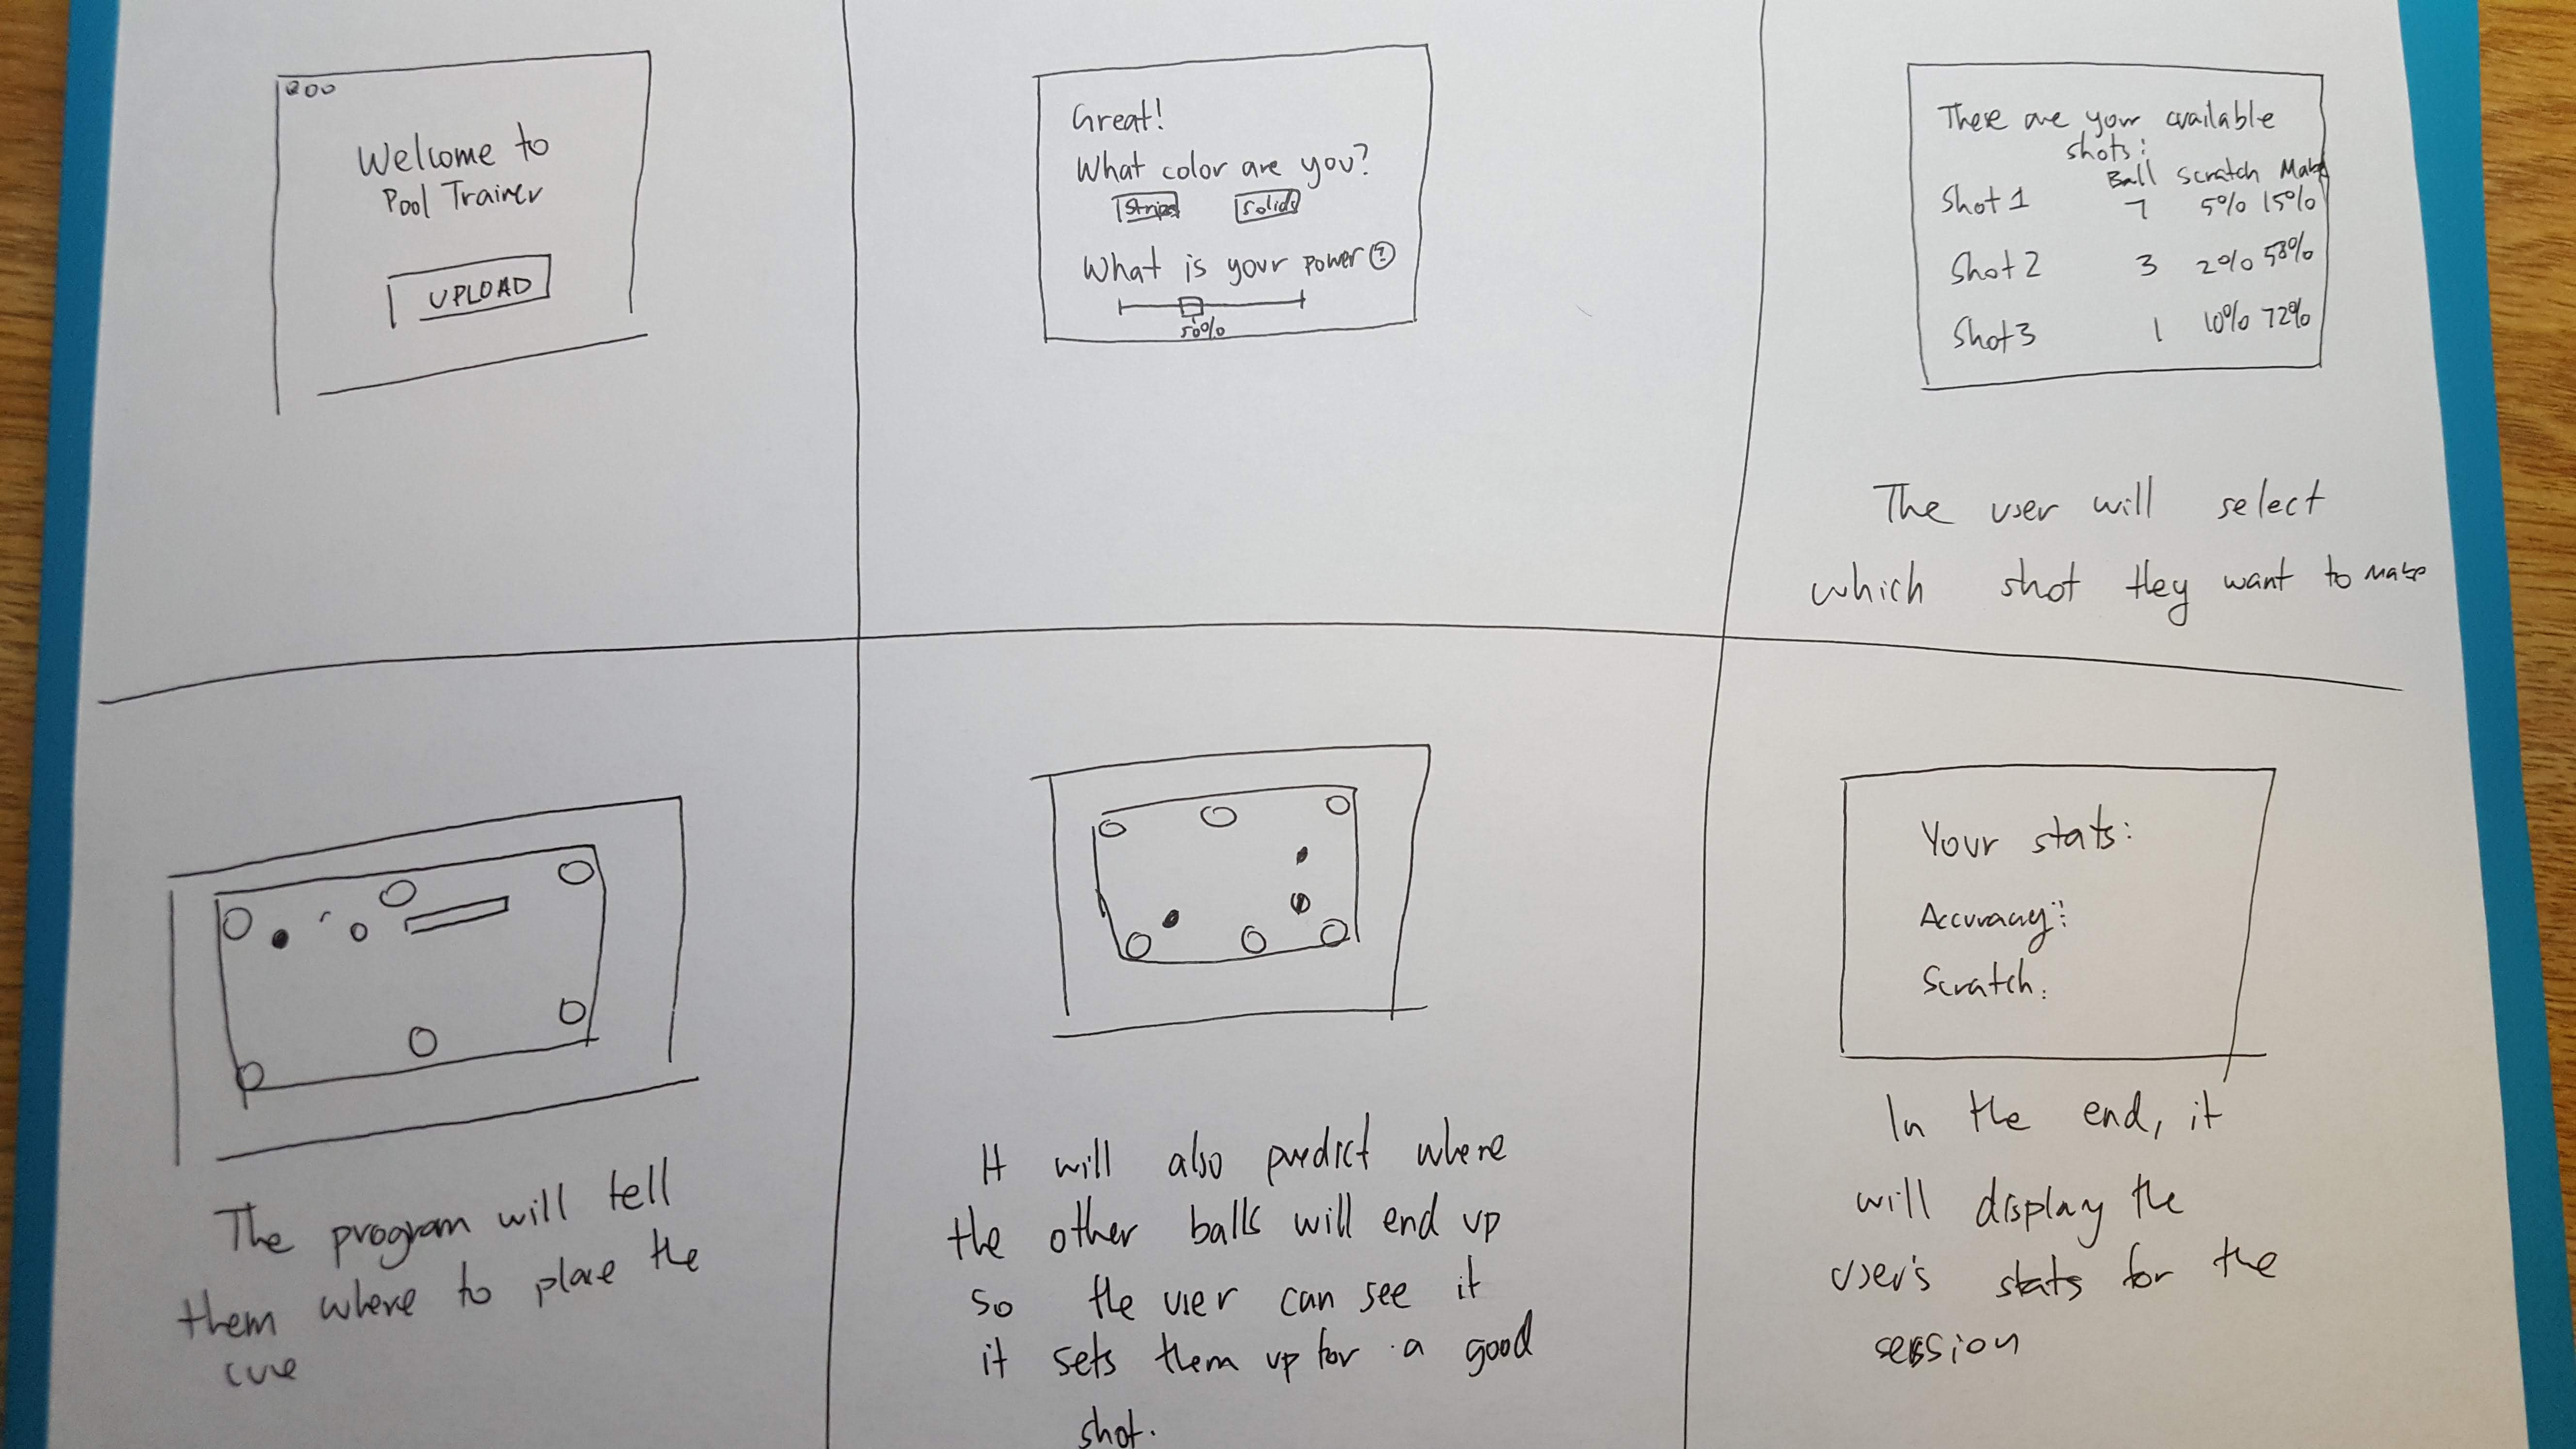 Welcome to
Pool Trainer
UPLOAD
Great!
What color are you?
Stripes Solids
What is your power?
50%
These are your available
shots:
Ball Scratch Make
Shot 1 7 5% 15%
Shot 2 3 2% 58%
Shot 3 1 10% 72%
The user will select
which shot they want to make
The program will tell
them where to place the
cue
It will also predict where
the other balls will end up
so the user can see it
it sets them up for a good
shot.
Your stats:
Accuracy:
Scratch:
In the end, it
will display the
user's stats for the
session